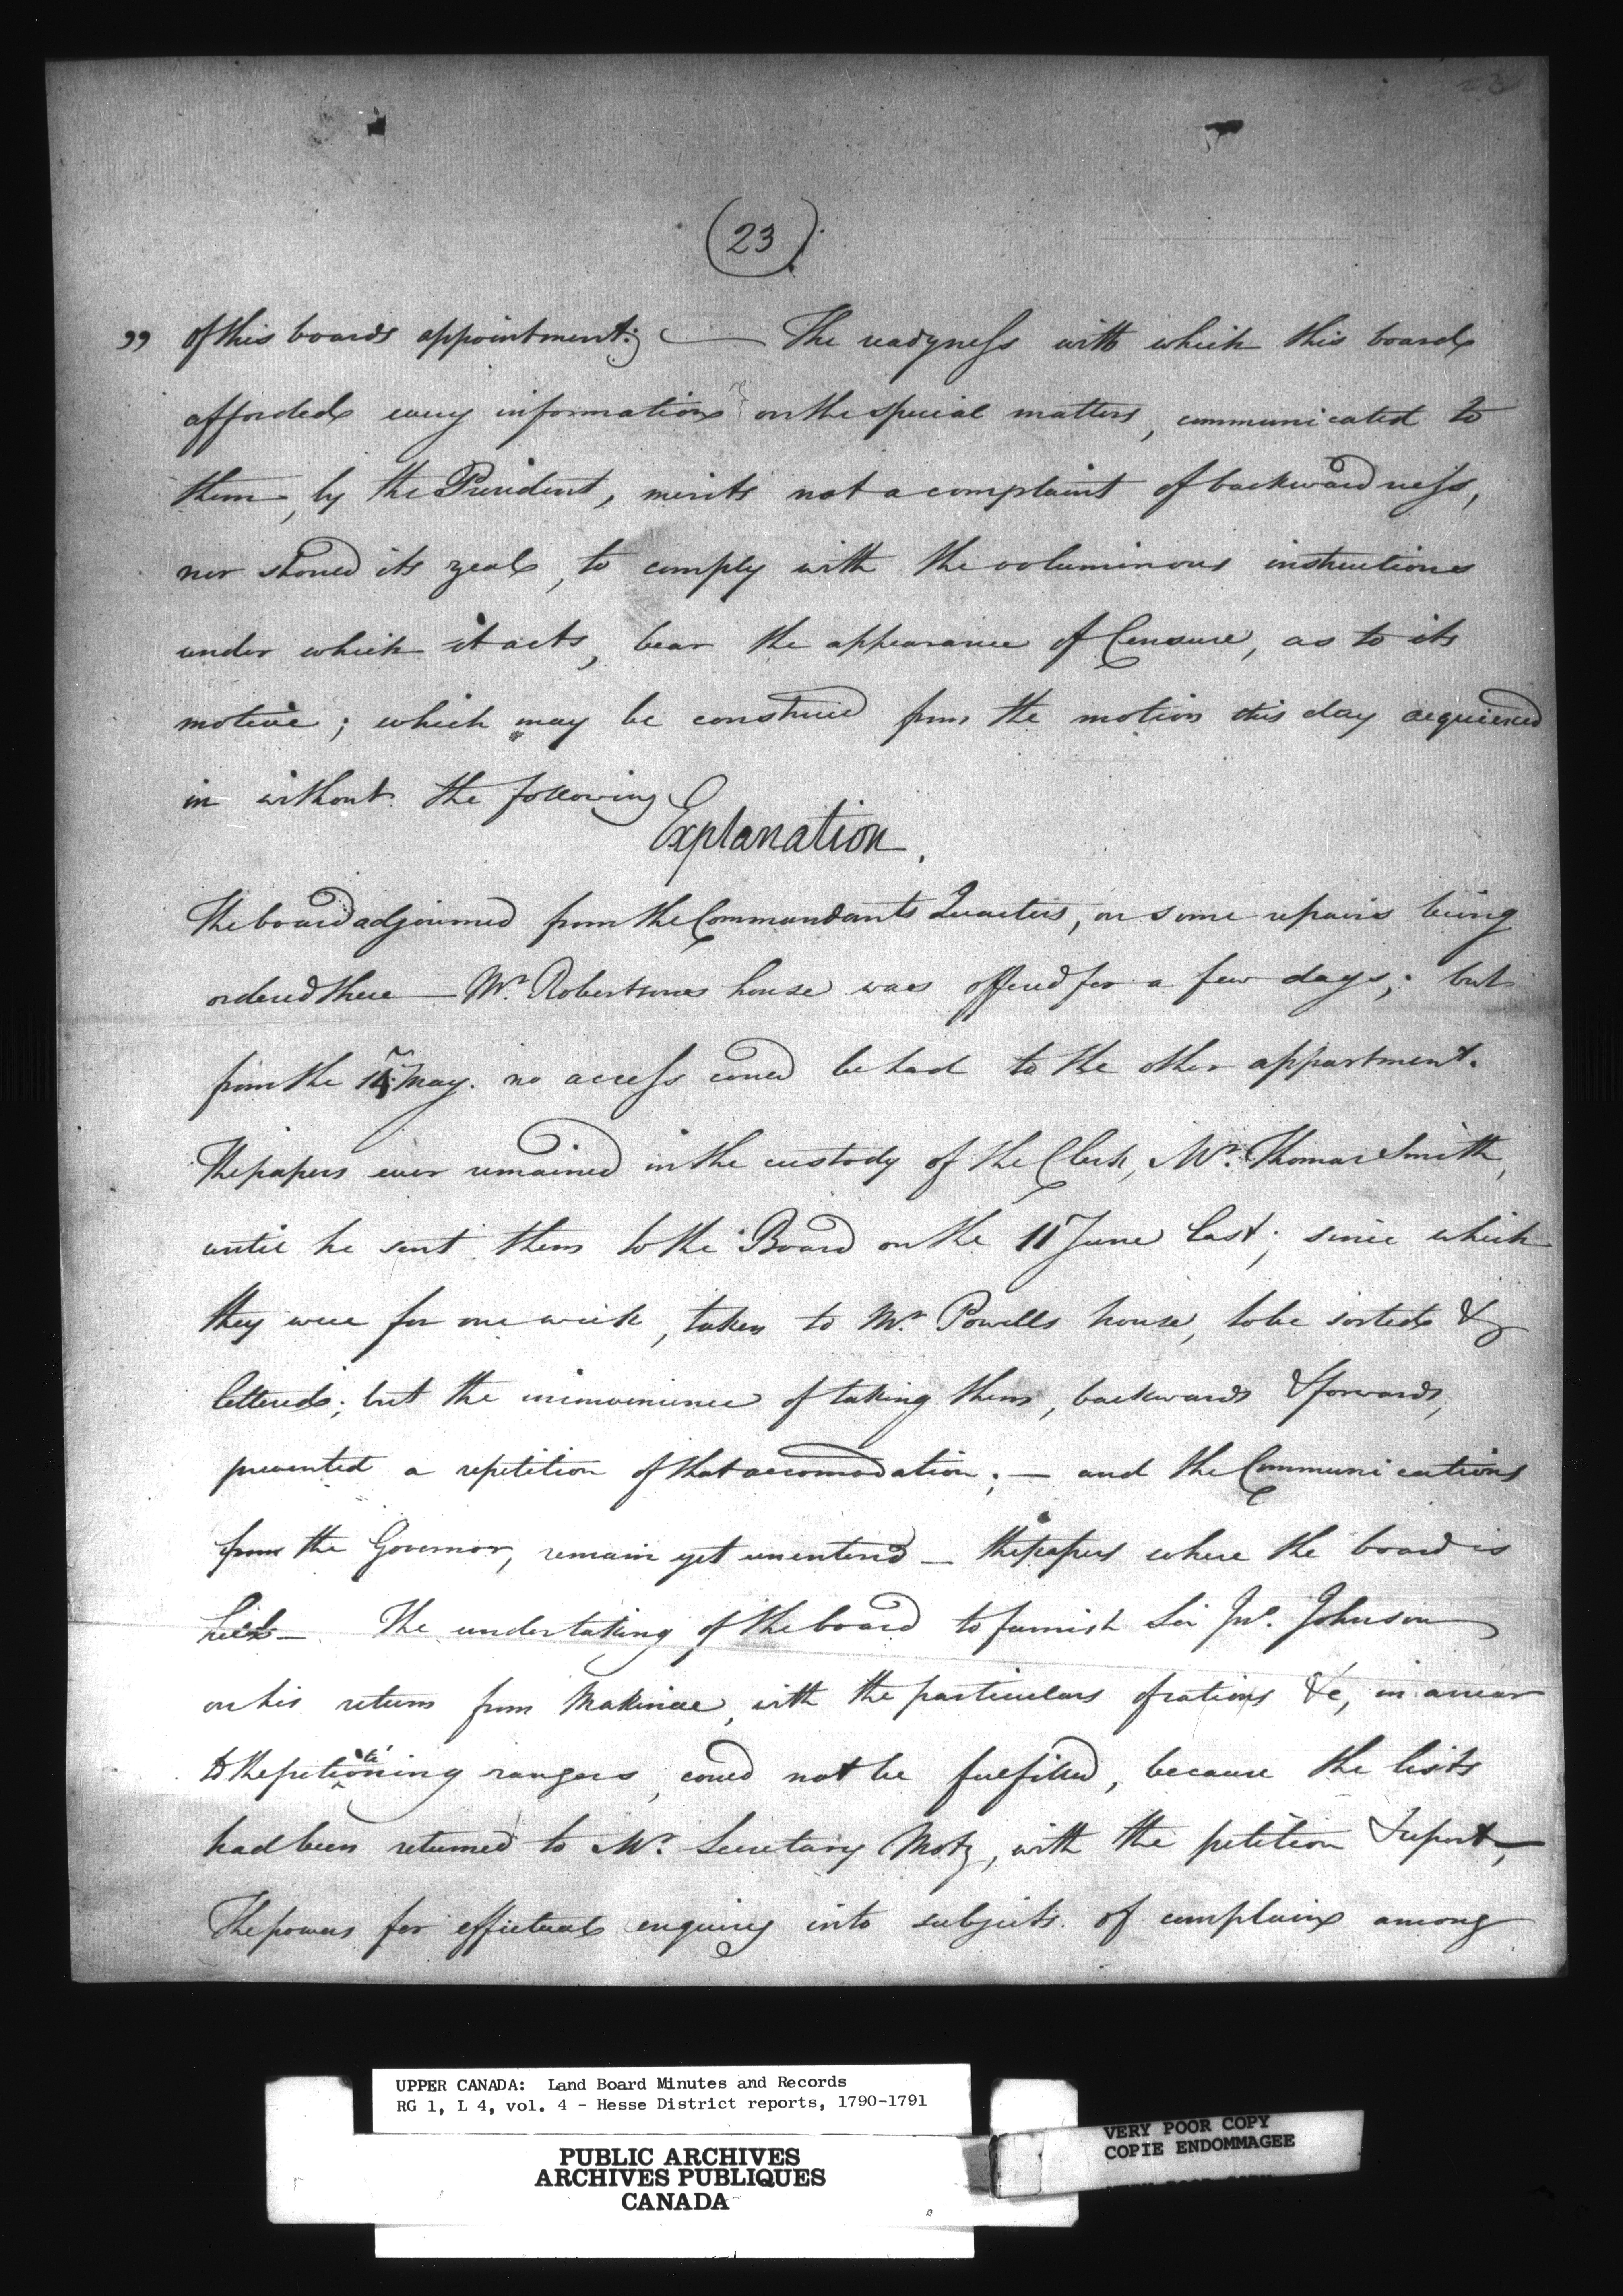 (23).
" of this boards appointment; — The readyness with which this board
afforded every information on the special matters, communicated to
them, by the President, merits not a complaint of backwardness,
nor should its zeal, to comply with the voluminous instructions
under which it acts, bear the appearance of Censure, as to its
motive; which may be construed from the motion this day acquiesced
in without the following
Explanation.
The board adjourned from the Commandants Quarters, on some repairs being
ordered there — Mr. Robertsons house was offered for a few days; but
from the 14 May. no access could be had to the other appartment.
The papers ever remained in the custody of the Clerk, Mr. Thomas Smith,
until he sent them to the Board on the 11 June last; since which
they were for one week, taken to Mr. Powells house, to be sorted &
lettered; but the inconvenience of taking them, backwards & forwards,
prevented a repetition of that accomodation; — and the Communications
from the Governor, remain yet unentered — the papers where the board is
held — The undertaking of the board to furnish Sir Jno. Johnson
on his return from Makinac, with the particulars of rations &c, in arrear
to the petitioning rangers, could not be fulfilled, because the lists
had been returned to Mr. Secretary Motz, with the petition & report,
The powers for effectual enquiry into subjects of complaint among
UPPER CANADA: Land Board Minutes and Records
RG 1, L 4, vol. 4 - Hesse District reports, 1790-1791
PUBLIC ARCHIVES
ARCHIVES PUBLIQUES
CANADA
VERY POOR COPY
COPIE ENDOMMAGEE